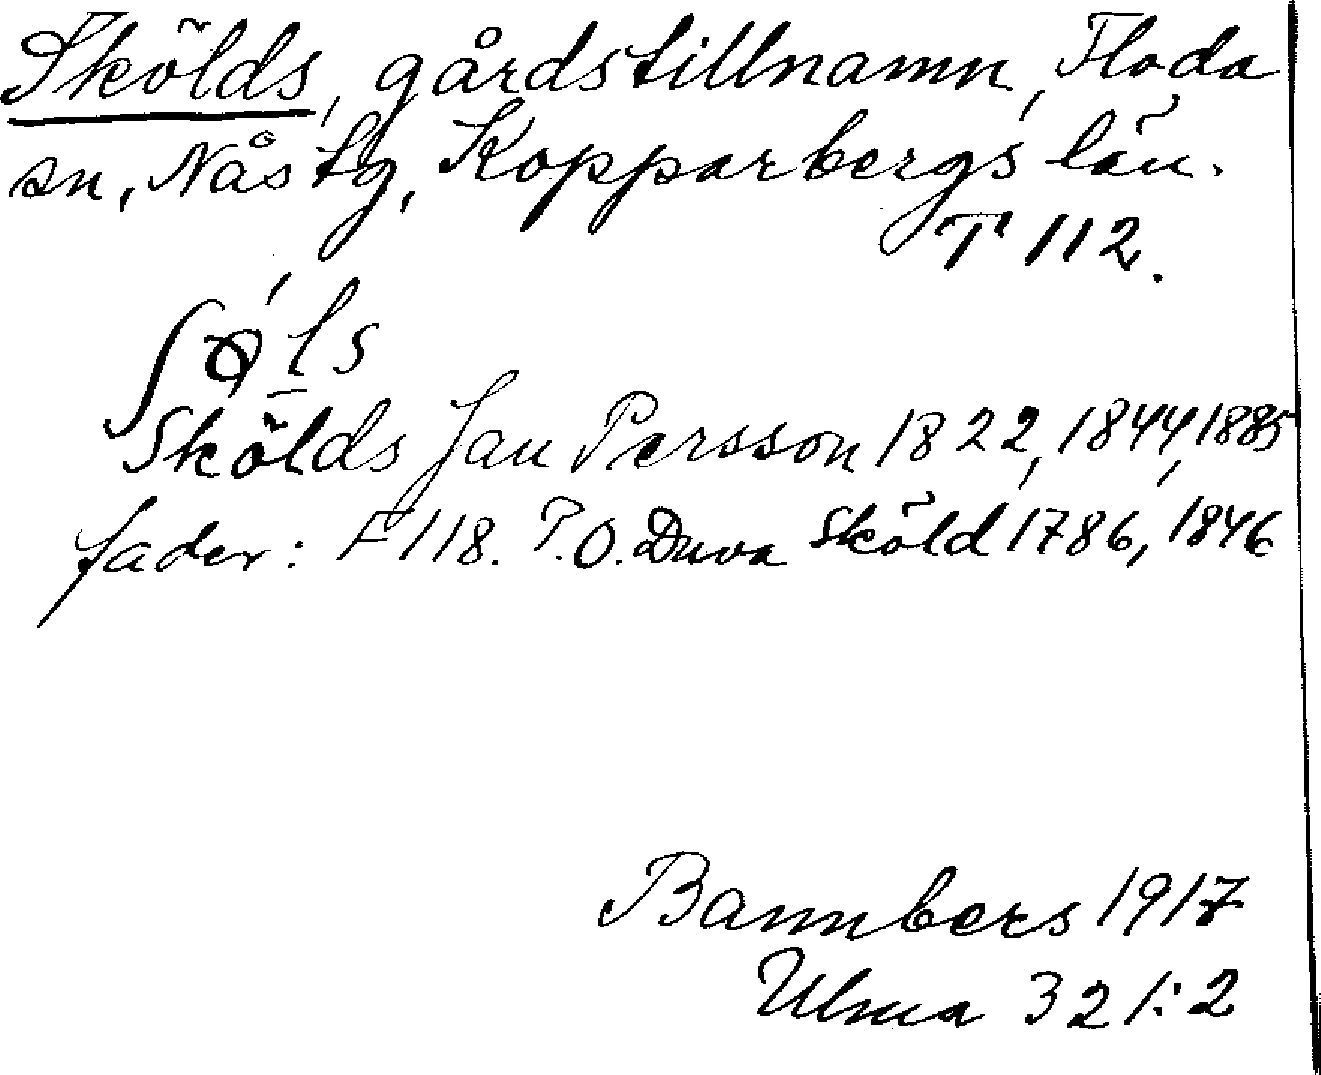 Skölds, gårdstillnamn, Floda
sn, Nås tg, Kopparbergs län.
T 112.
ʃø̀l̲s
Skölds Jan Persson 1822, 1844, 1885
fader: F 118. P. O. Duva Sköld 1786, 1846
Bannbers 1917
Ulma 321:2